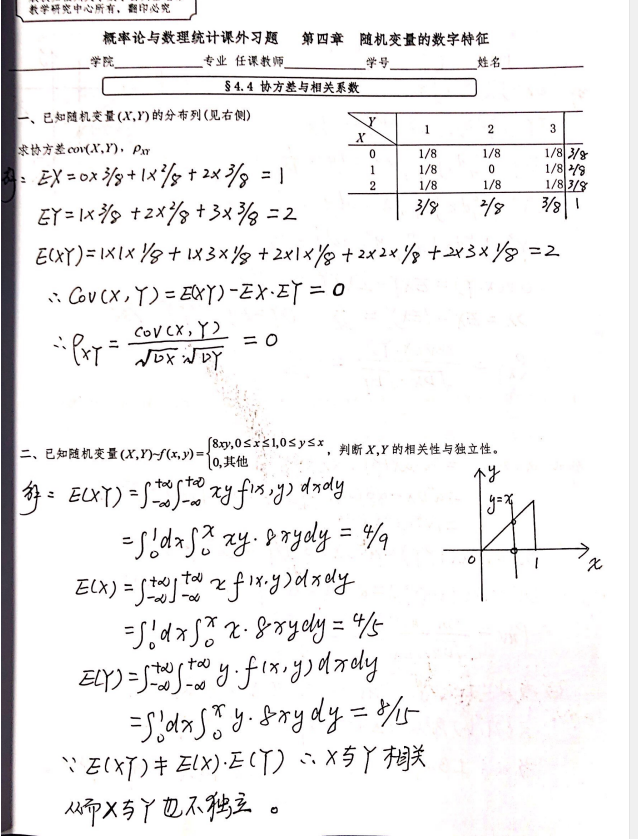 教学研究中心所有，翻印必究
概率论与数理统计课外习题 第四章 随机变量的数字特征
学院 专业 任课教师 学号 姓名
§4.4 协方差与相关系数
一、已知随机变量(X,Y)的分布列(见右侧)
求协方差cov(X,Y)，ρXY
Y
X 1 2 3
0 1/8 1/8 1/8 3/8
1 1/8 0 1/8 2/8
2 1/8 1/8 1/8 3/8
3/8 2/8 3/8 1
解: EX=0×3/8+1×2/8+2×3/8=1
EY=1×3/8+2×2/8+3×3/8=2
E(XY)=1×1×1/8+1×3×1/8+2×1×1/8+2×2×1/8+2×3×1/8=2
∴ Cov(X,Y)=E(XY)-EX·EY=0
∴ ρXY = cov(X,Y)/√DX·√DY = 0
二、已知随机变量(X,Y)~f(x,y)={8xy,0≤x≤1,0≤y≤x 0,其他，判断X,Y的相关性与独立性。
解: E(XY)=∫-∞+∞∫-∞+∞ xy f(x,y) dxdy
=∫01dx∫0x xy·8xydy=4/9
E(X)=∫-∞+∞∫-∞+∞ x f(x,y)dxdy
=∫01dx∫0x x·8xydy=4/5
E(Y)=∫-∞+∞∫-∞+∞ y·f(x,y)dxdy
=∫01dx∫0x y·8xydy=8/15
∵ E(XY)≠E(X)·E(Y) ∴ X与Y相关
从而X与Y也不独立。
y
y=x
0 1 x